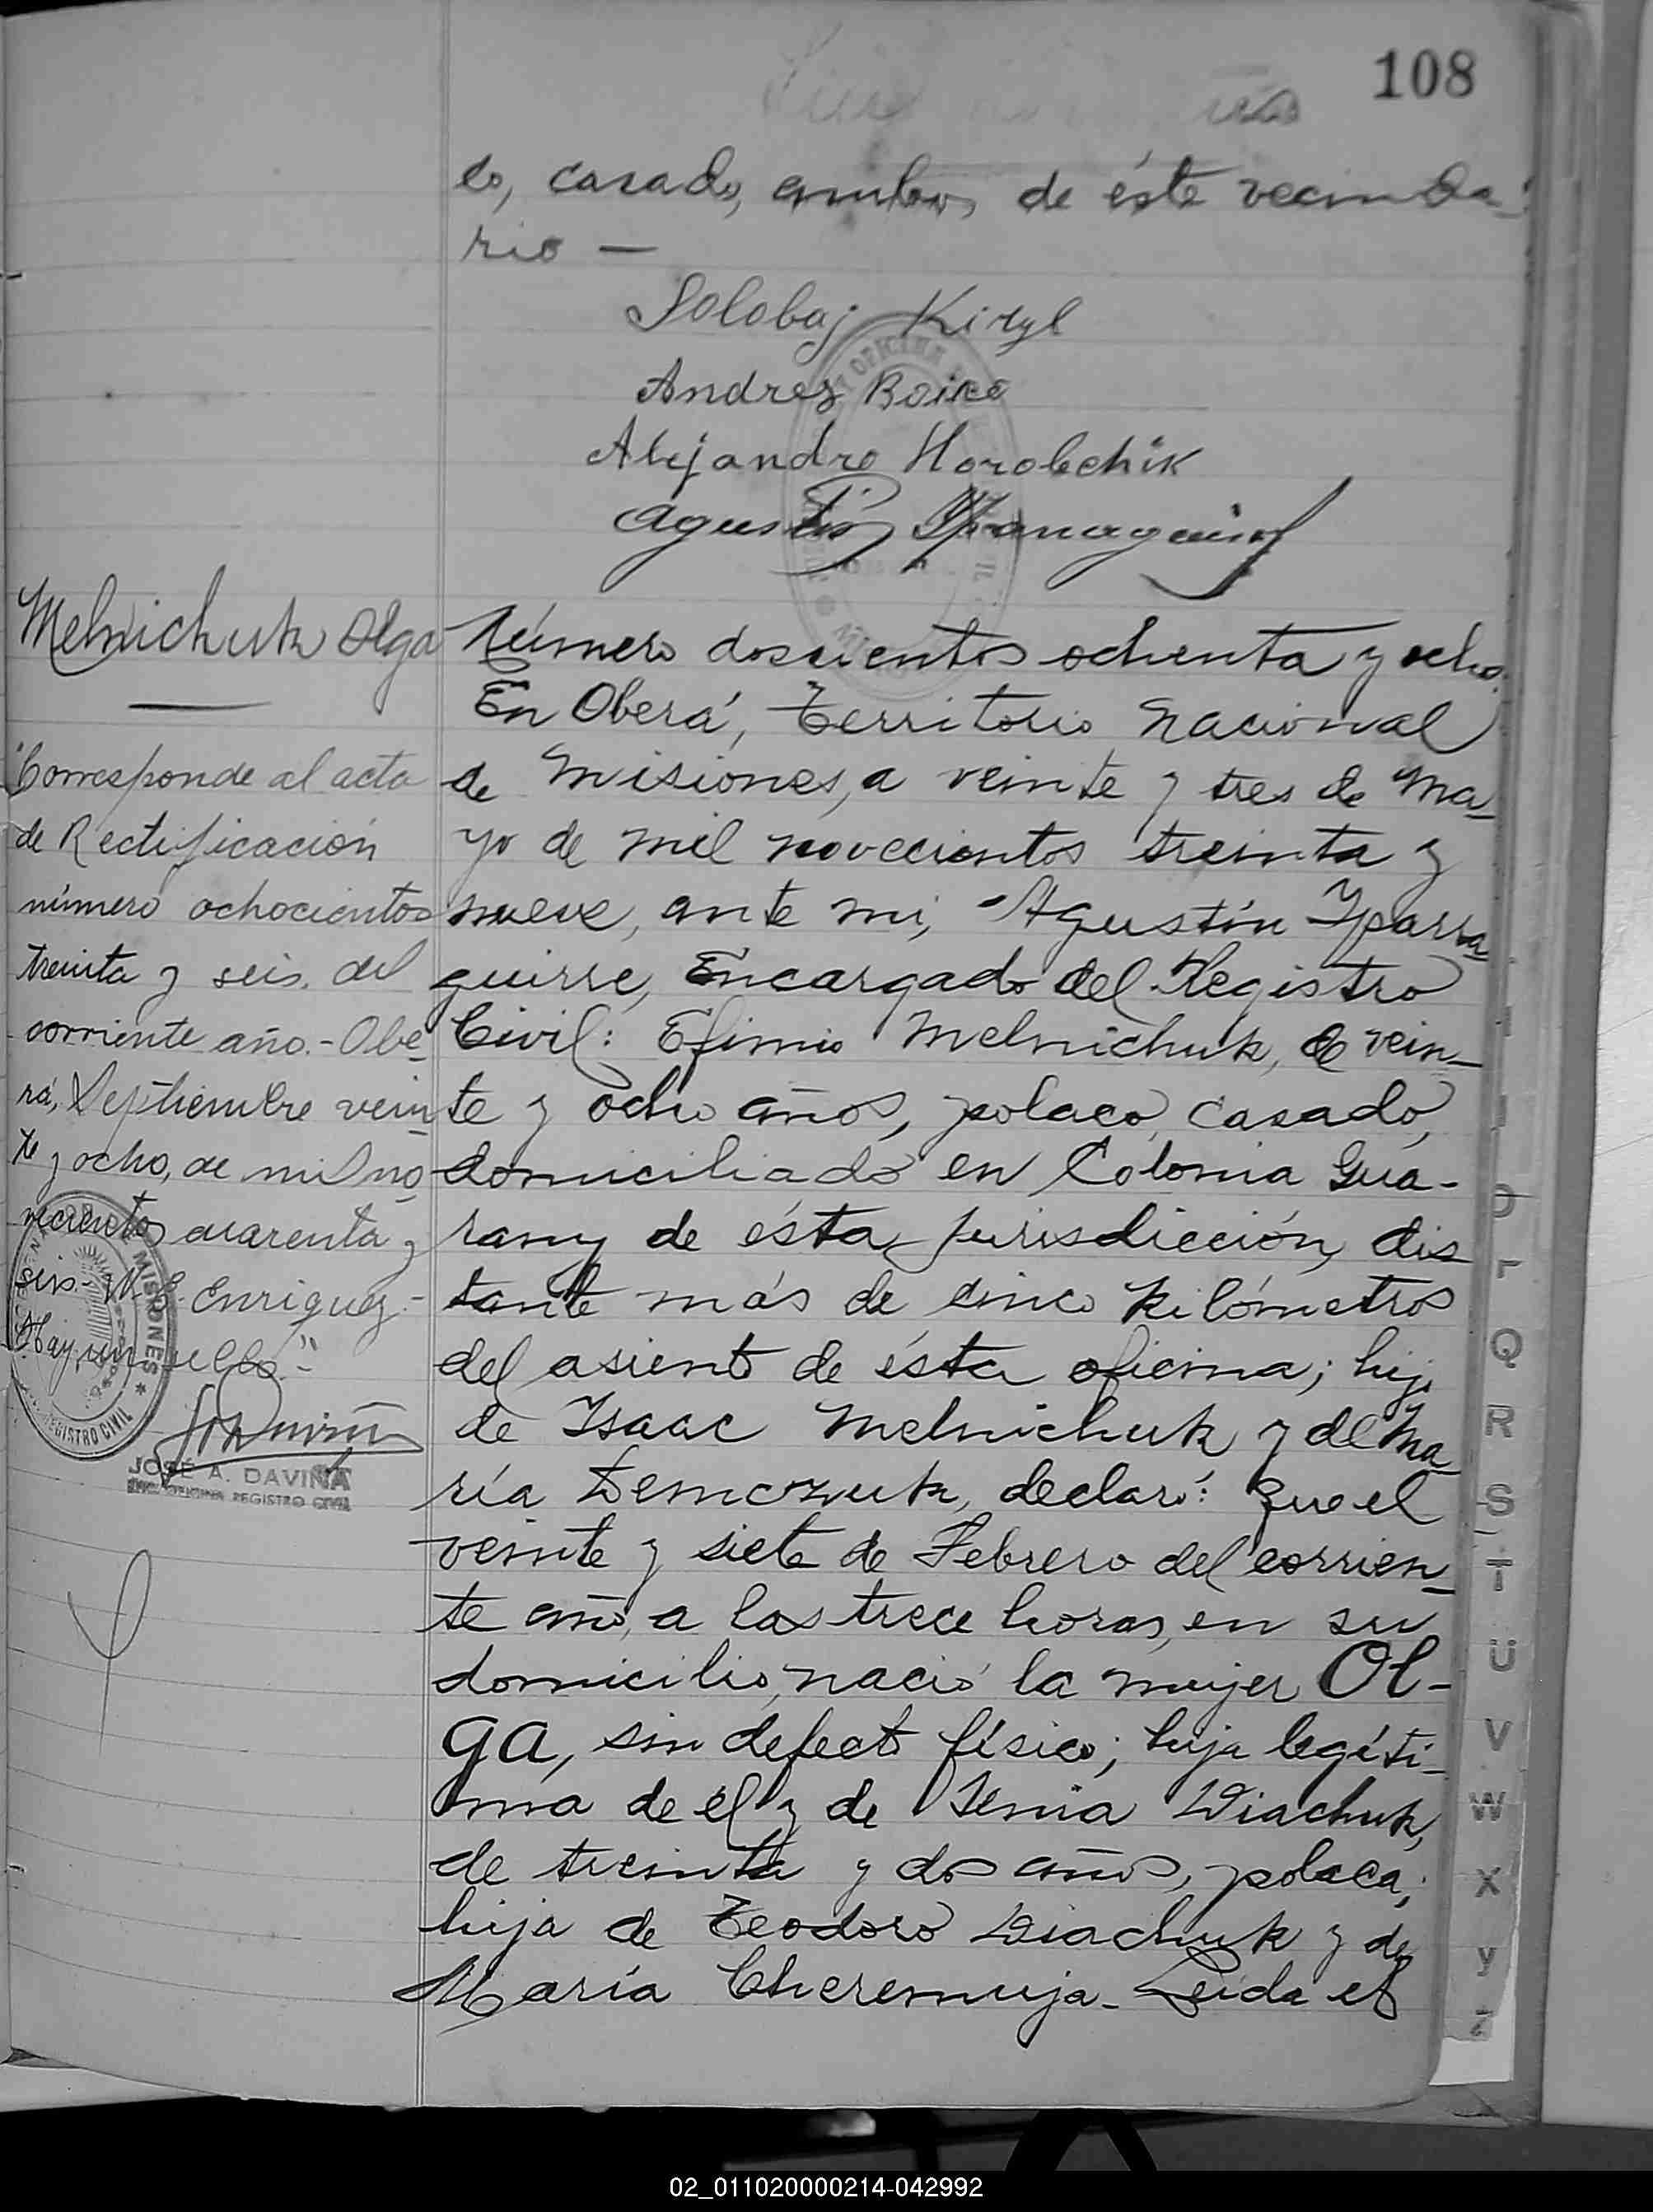 108
do, casado, ambos de éste vecinda-
rio —
Solobaj Kiryl
Andres Boico
Alejandro Horobchik
Agustín Yparraguirre
Melnichuk Olga
"Corresponde al acta
de Rectificación
número ochocientos
treinta y seis del
corriente año.- Obe-
rá, Septiembre vein-
te y ocho, de mil no-
vecientos cuarenta y
seis.- M. E. Enriquez.-
Hay un sello."-
MISIONES
REGISTRO CIVIL
JOSÉ A. DAVIÑA
OFICINA REGISTRO CIVIL
Número doscientos ochenta y ocho.
En Oberá, Territorio Nacional
de Misiones, a veinte y tres de Ma-
yo de mil novecientos treinta y
nueve, ante mi, Agustín Yparra-
guirre, Encargado del Registro
Civil: Efimio Melnichuk, de vein-
te y ocho años, polaco, casado,
domiciliado en Colonia Gua-
rany de ésta jurisdicción, dis-
tante más de cinco kilómetros
del asiento de ésta oficina; hijo
de Isaac Melnichuk y de Ma-
ría Demczuk, declaró: Que el
veinte y siete de Febrero del corrien-
te año, a las trece horas, en su
domicilio, nació la mujer Ol-
ga, sin defecto físico; hija legíti-
ma de él y de Xenia Diachuk,
de treinta y dos años, polaca;
hija de Teodoro Diachuk y de
María Cheremuja.- Leída el
O
P
Q
R
S
T
U
V
W
X
Y
Z
02_011020000214-042992